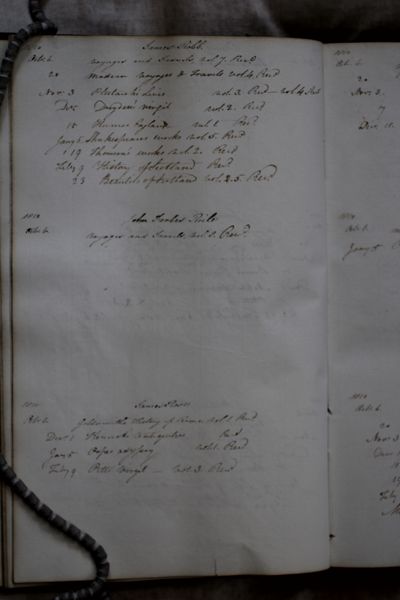 1810 James Robb.
Octr. 6. Voyages and Travels vol. 7. Recd
20 Modern Voyages & Travels vol. 4 Recd
Novr. 3 Plutarchs Lives vol. 3. Recd — vol. 4
Decr Drydens Virgil vol. 2. Recd
15 Humes England vol. 1 Recd
Jany. 5 Shakespeares works vol. 5. Recd
19 Thomsons works vol. 2. Recd
Feby. 9 History of Scotland Recd
23 Beauties of Scotland vol. 2. 5. Recd
1810 John Forbes Robb
Octr. 6. Voyages and Travels, vol. 8. Recd
1810 James
Octr. 6. Goldsmiths History of Rome vol. 1 Recd
Decr. 1 Kennets Antiquities Recd
Jany. 5 vol. 1. Recd
Feby. 9 Pitts Virgil — vol. 3. Recd
1810
Octr. 6.
20
Novr. 3.
Decr. 11.
1810
Octr. 6.
Jany. 5
1810
Octr. 6.
20
Novr. 3
Decr.
19
Feby.